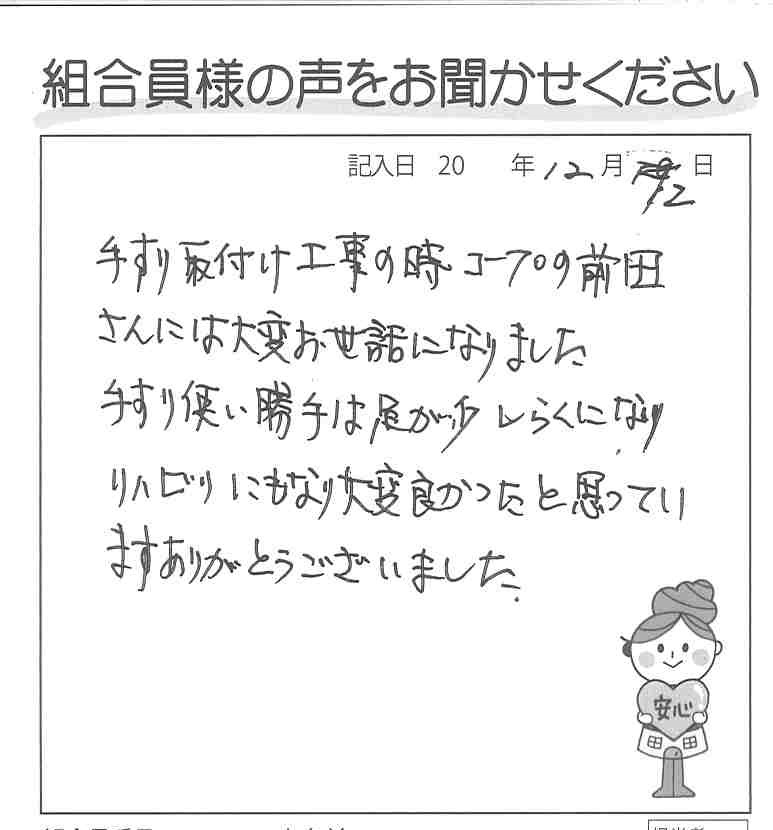 組合員様の声をお聞かせください
記入日 20 年12月 12日
手すり取付け工事の時コープの前田
さんには大変お世話になりました
手すり使い勝手は足が少しらくになり
リハビリにもなり大変良かったと思ってい
ますありがとうございました.
安心